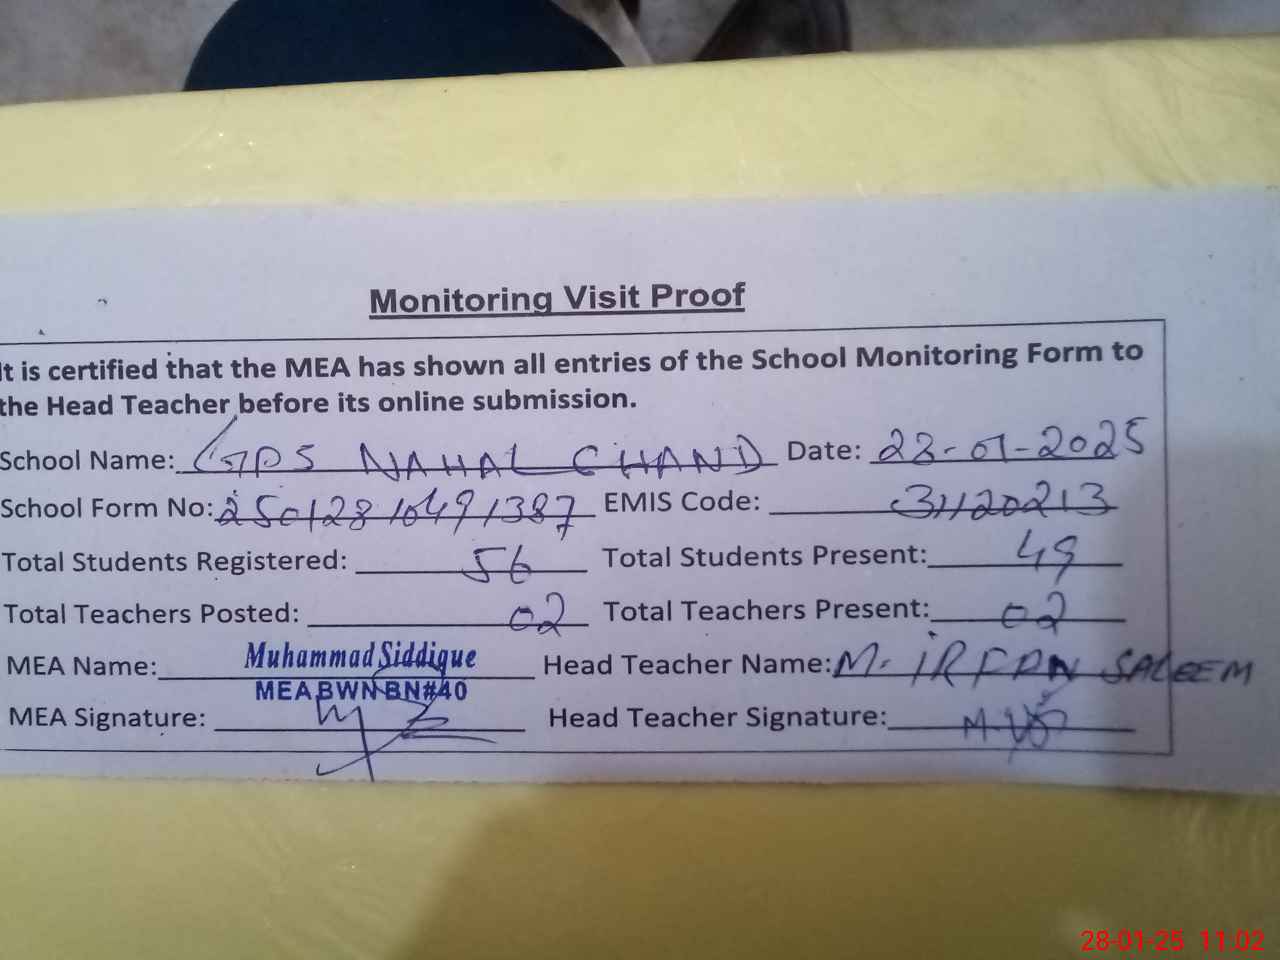 Monitoring Visit Proof
It is certified that the MEA has shown all entries of the School Monitoring Form to
the Head Teacher before its online submission.
School Name: GPS NAHAL CHAND Date: 28-01-2025
School Form No: 25012810491387 EMIS Code: 31120213
Total Students Registered: 56 Total Students Present: 49
Total Teachers Posted: 02 Total Teachers Present: 02
MEA Name: Muhammad Siddique Head Teacher Name: M. IRFAN SALEEM
MEA BWN BN#40
MEA Signature: Head Teacher Signature:
28-01-25 11:02